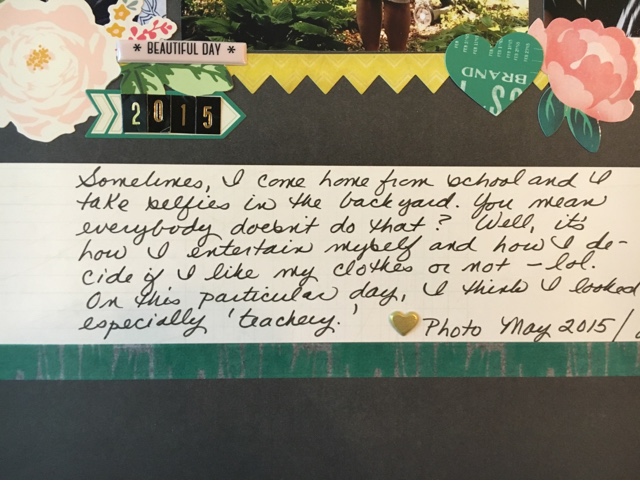 * BEAUTIFUL DAY *
BRAND
2015
Sometimes, I come home from school and I
take selfies in the backyard. You mean
everybody doesn't do that? Well, it's
how I entertain myself and how I de-
cide if I like my clothes or not - lol.
On this particular day, I think I looked
especially 'teachery.'
Photo May 2015/